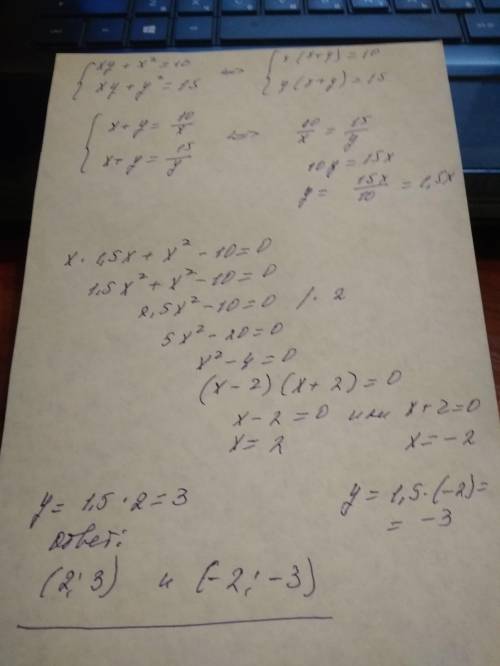 { xy + x² = 10 <=> { x(x+y) = 10
{ xy + y² = 15 { y(x+y) = 15
{ x+y = 10/x <=> 10/x = 15/y
{ x+y = 15/y 10y = 15x
y = 15x/10 = 1,5x
x · 1,5x + x² - 10 = 0
1,5x² + x² - 10 = 0
2,5x² - 10 = 0 / · 2
5x² - 20 = 0
x² - 4 = 0
(x - 2)(x + 2) = 0
x - 2 = 0 или x + 2 = 0
x = 2 x = -2
y = 1,5 · 2 = 3 y = 1,5 · (-2) =
= -3
Ответ:
(2; 3) и (-2; -3)